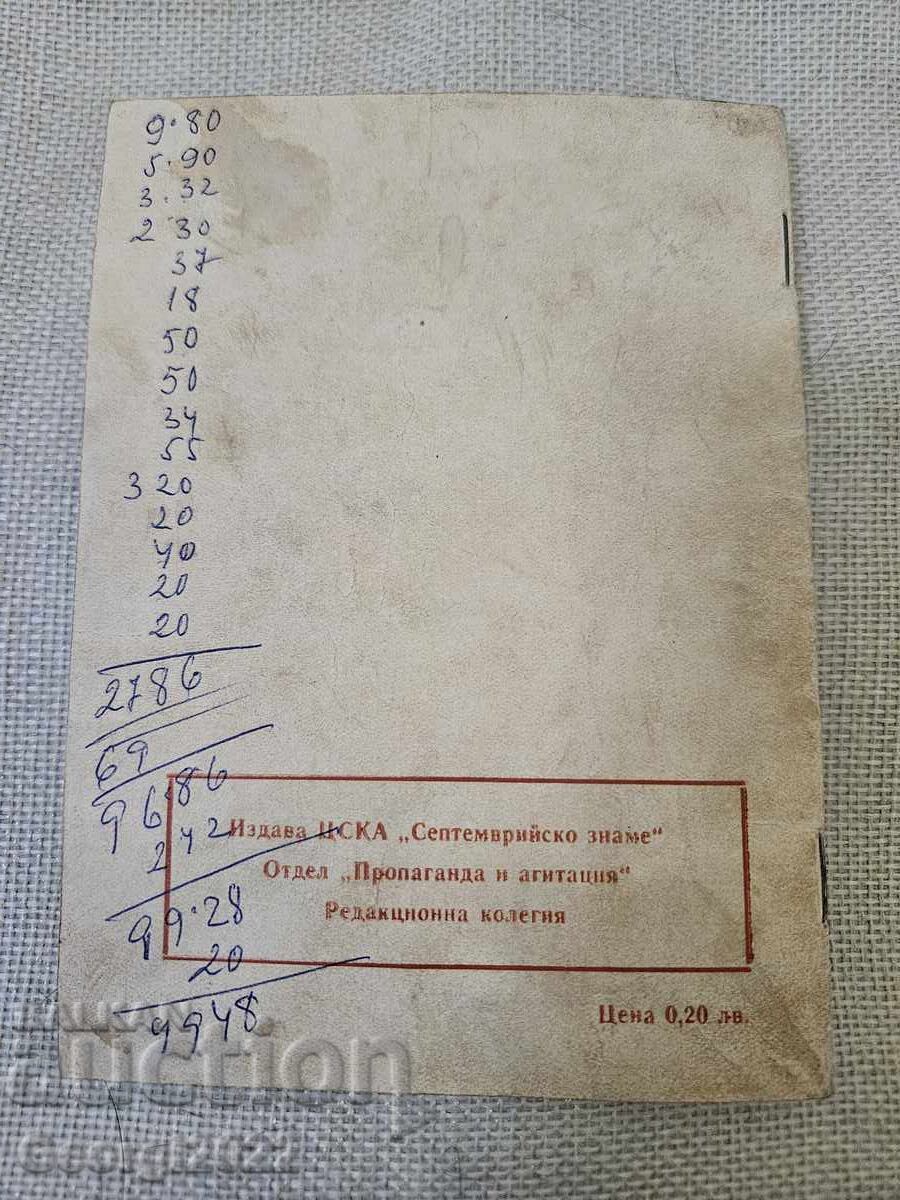 9.80
5.90
3.32
2 30
37
18
50
50
34
55
3 20
20
40
20
20
2786
69
96.86
242
99.28
20
9948
Издава ЦСКА „Септемврийско знаме"
Отдел „Пропаганда и агитация"
Редакционна колегия
Цена 0,20 лв.
BALKAN
Auction
Georgi2022